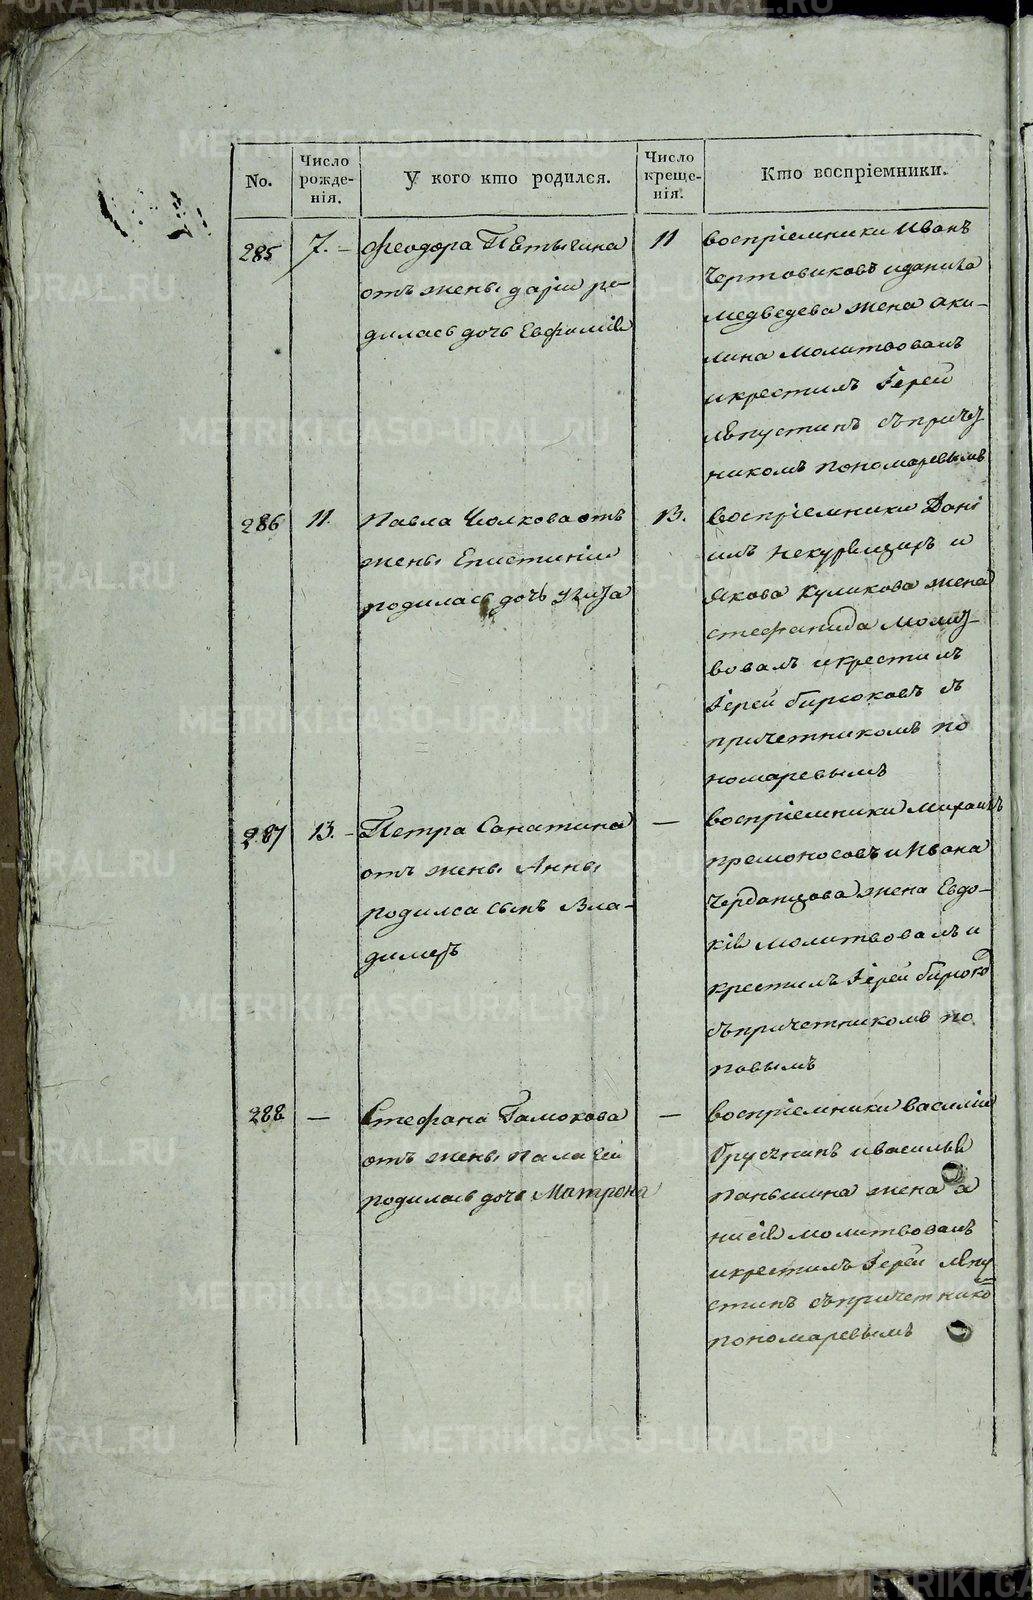 No.
Число рожде-нія.
У кого кто родился.
Число креще-нія.
Кто воспріемники.
285
7. –
Феодора Петыгина
отъ жены даріи ро-
дилась дочь Евфимія
11
воспріемники Иванъ
Чертовиковъ и данила
медведева жена аки-
лина молитвовалъ
и крестилъ Іерей
съ причет
никомъ пономаревымъ
286
11.
Павла Чолкова отъ
жены Епистиміи
родилась дочь
13.
воспріемники Дані
илъ и
Якова Куликова жена
стефанида молит
вовалъ и крестилъ
Іерей бирюковъ съ
причетникомъ по
номаревымъ
287
13. –
Петра Санатина
отъ жены Анны
родился сынъ Вла-
димеръ
—
воспріемники Михаилъ
и Ивана
Черданцова жена Евдо-
кія молитвовалъ и
крестилъ Іерей бирюко
съ причетникомъ по
повымъ
288
—
Стефана Гамокова
отъ жены палагеи
родилась дочь Матрона
—
воспріемники василій
и василья
паньшина жена а
нисія молитвовалъ
и крестилъ Іерей
стинъ съ причетнико
пономаревымъ
METRIKI.GASO-URAL.RU